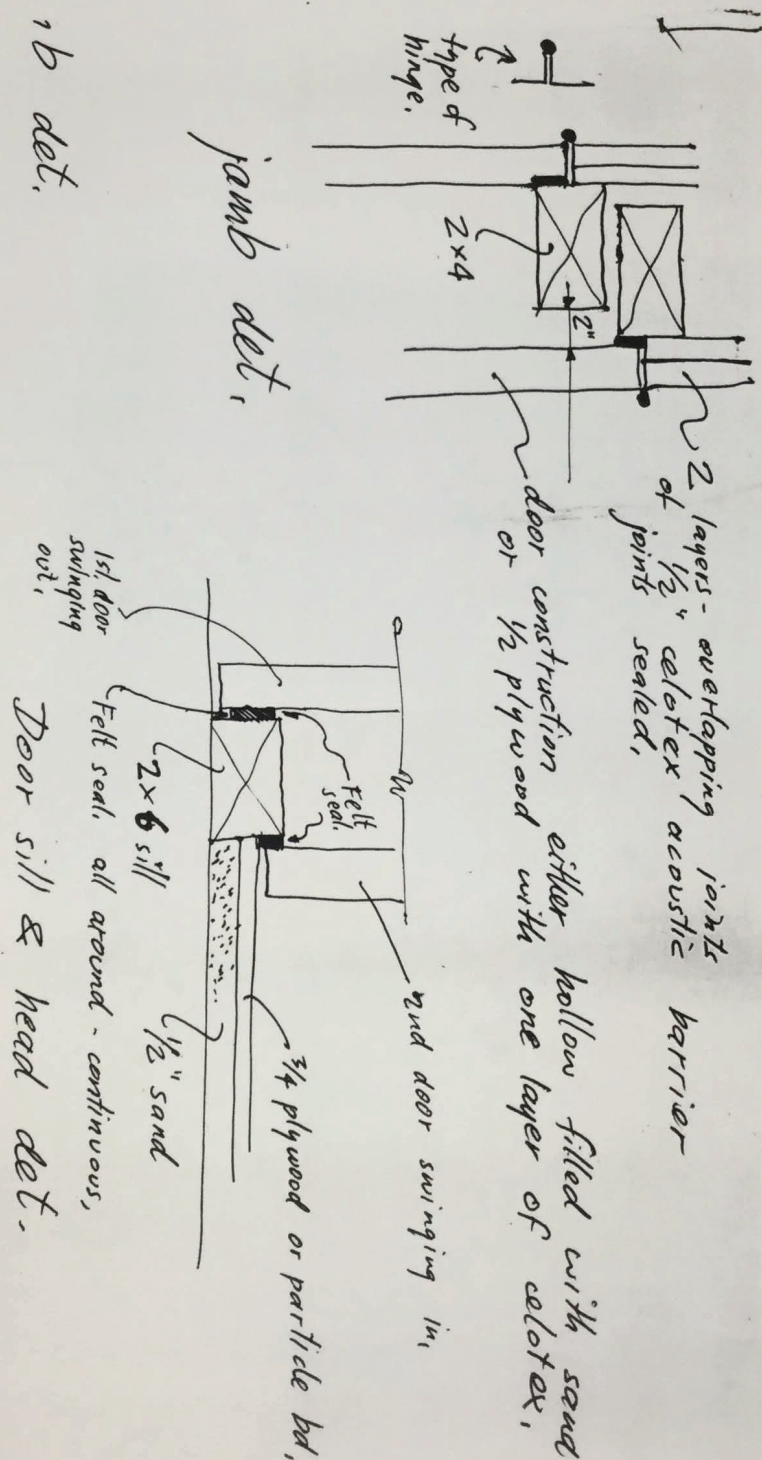 type of
hinge.
2x4
2"
2 layers - overlapping joints
of 1/2" celotex acoustic barrier
joints sealed.
door construction either hollow filled with sand
or 1/2 plywood with one layer of celotex.
jamb det.
1st. door
swinging
out.
Felt
seal.
2nd door swinging in.
3/4 plywood or particle bd.
1/2" sand
2x6 sill
Felt seal. all around - continuous.
Door sill & head det.
b det.